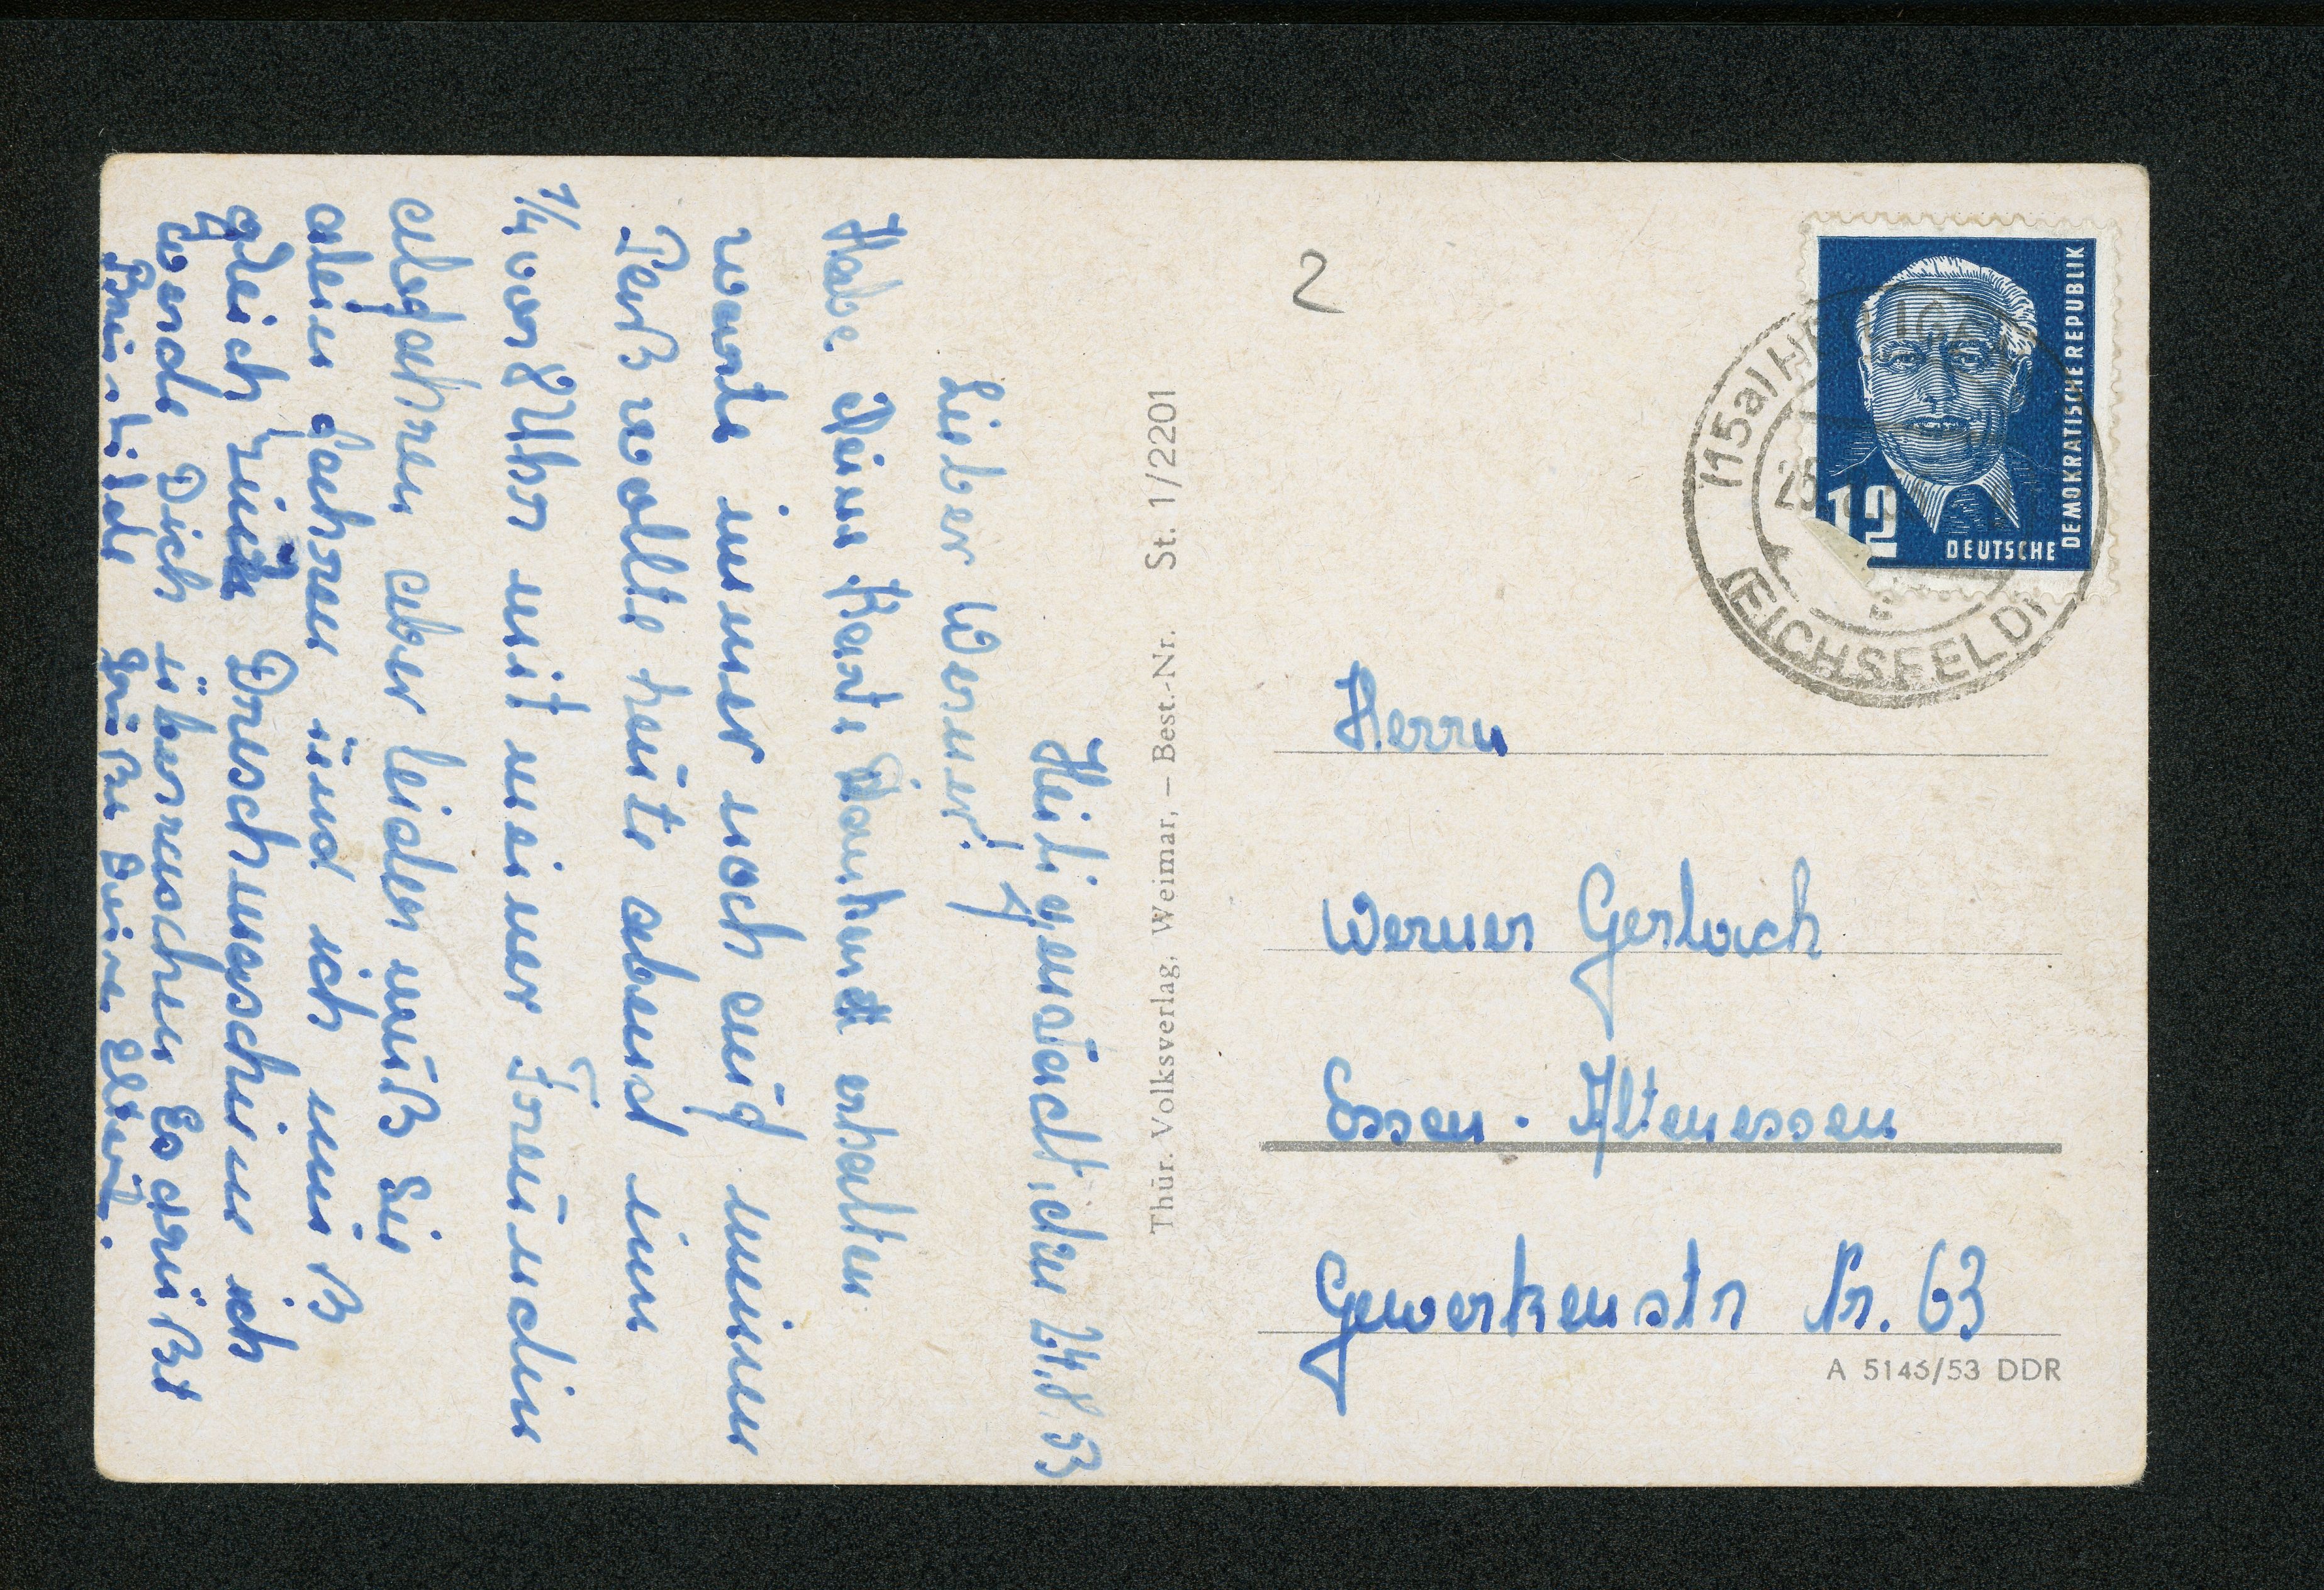 Heiligenstadt, den 24.8.53
Lieber Werner!
Habe Deine Karte dankend erhalten
warte immer noch auf meinen
Paß wollte heute abend um
1/4 vor 8 Uhr mit meiner Freundin
abfahren aber leider muß Sie
allein fahren und ich muß
gleich zum Dreschmaschine ich
werde Dich überraschen Es grüßt
Brunhilde Grüße Deine Eltern.
Thür. Volksverlag, Weimar, – Best.-Nr. St. 1/2201
2
DEUTSCHE
DEMOKRATISCHE REPUBLIK
12
(15a) HEILIGENSTADT
(EICHSFELD)
c
Herrn
Werner Gerlach
Essen-Altenessen
Gewerkenstr Nr. 63
A 5146/53 DDR